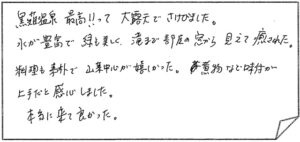 黒薙温泉 最高!!って 大露天でさけびました。
水が豊富で 緑も美しく、滝まで部屋の窓から 見えて癒された。
料理も素朴で 山菜中心が嬉しかった。煮物など味付が
上手だと感心しました。
本当に来て良かった。